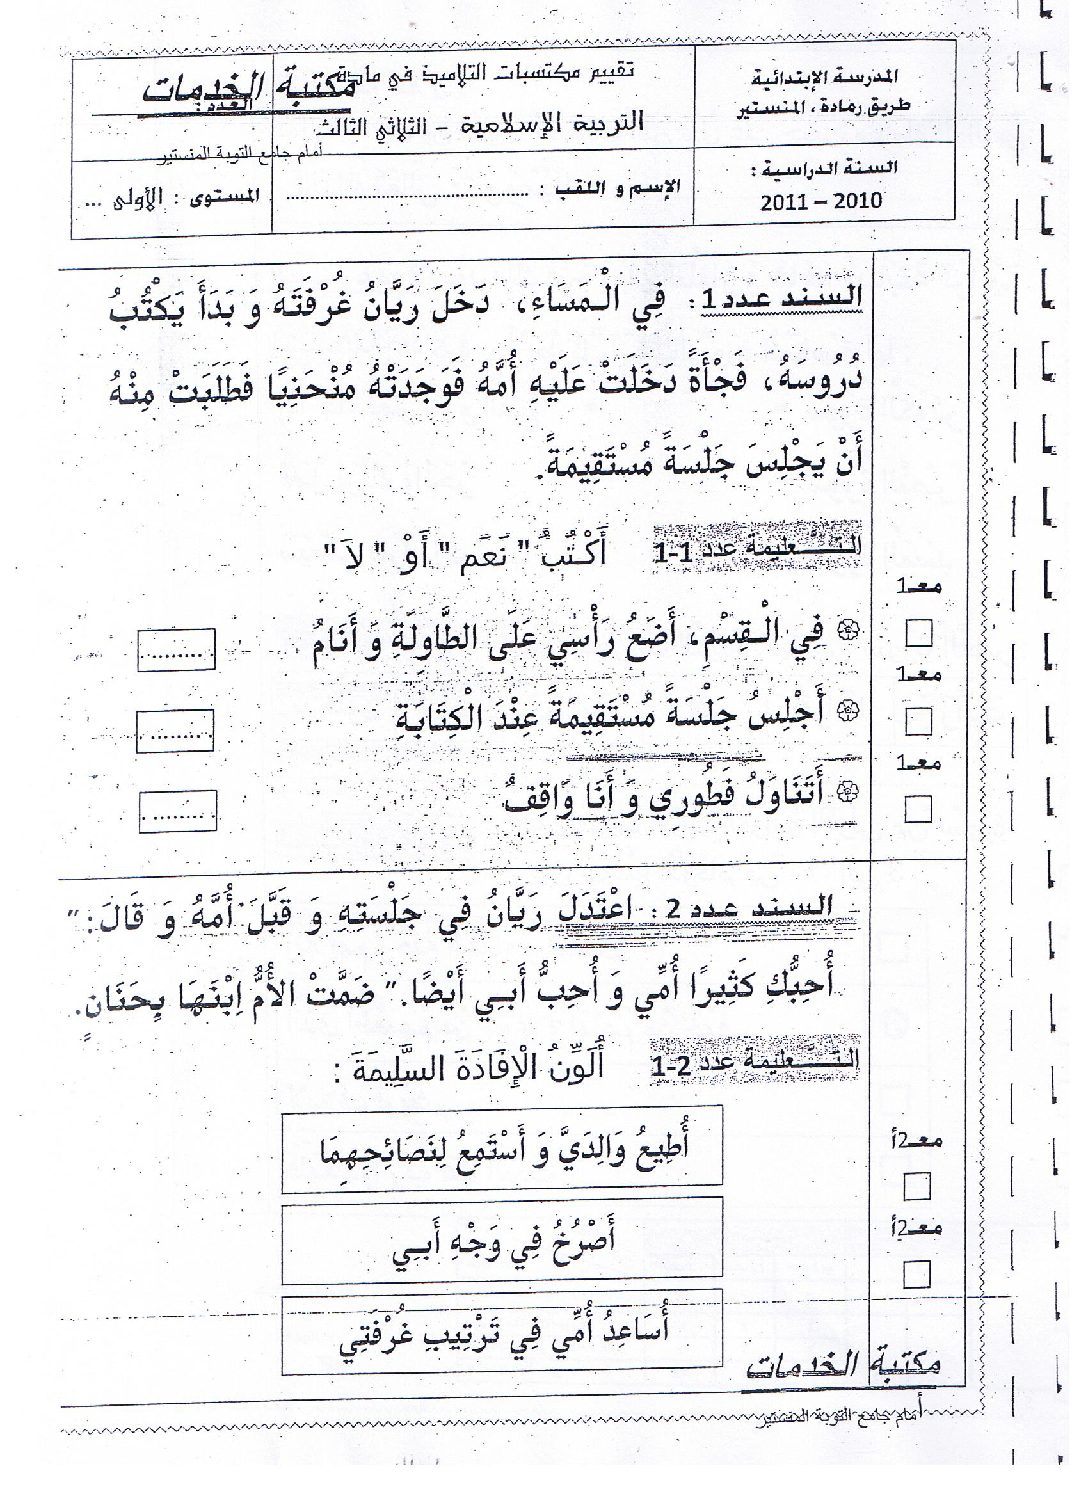 المدرسة الإبتدائية
طريق رمادة، المنستير
تقييم مكتسبات التلاميذ في مادة
التربية الإسلامية – الثلاثي الثالث
مكتبة الخدمات
العدد :
أمام جامع التوبة المنستير
السنة الدراسية :
2010 – 2011
الإسم و اللقب : ................................
المستوى : الأولى ...
السند عدد 1: فِي الْمَسَاءِ، دَخَلَ رَيَّانُ غُرْفَتَهُ وَ بَدَأَ يَكْتُبُ
دُرُوسَهُ، فَجْأَةً دَخَلَتْ عَلَيْهِ أُمَّهُ فَوَجَدَتْهُ مُنْحَنِيًا فَطَلَبَتْ مِنْهُ
أَنْ يَجْلِسَ جَلْسَةً مُسْتَقِيمَةً.
التـــعليمة عدد 1-1 أَكْتُبُ " نَعَم " أَوْ " لاَ "
معـ1
فِي الْقِسْمِ، أَضَعُ رَأْسِي عَلَى الطَّاوِلَةِ وَ أَنَامُ ..........
معـ1
أَجْلِسُ جَلْسَةً مُسْتَقِيمَةً عِنْدَ الْكِتَابَةِ ..........
معـ1
أَتَنَاوَلُ فَطُورِي وَ أَنَا وَاقِفُ ..........
السند عدد 2 : اعْتَدَلَ رَيَّانُ فِي جَلْسَتِهِ وَ قَبَّلَ أُمَّهُ وَ قَالَ: "
أُحِبُّكِ كَثِيرًا أُمِّي وَ أُحِبُّ أَبِي أَيْضًا." ضَمَّتْ الأُمُّ اِبْنَهَا بِحَنَانٍ.
التـــعليمة عدد 2-1 أُلَوِّنُ الْإِفَادَةَ السَّلِيمَةَ :
معـ2أ
أُطِيعُ وَالِدَيَّ وَ أَسْتَمِعُ لِنَصَائِحِهِمَا
معـ2أ
أَصْرُخُ فِي وَجْهِ أَبِي
أُسَاعِدُ أُمِّي فِي تَرْتِيبِ غُرْفَتِي
مكتبة الخدمات
أمام جامع التوبة المنستير